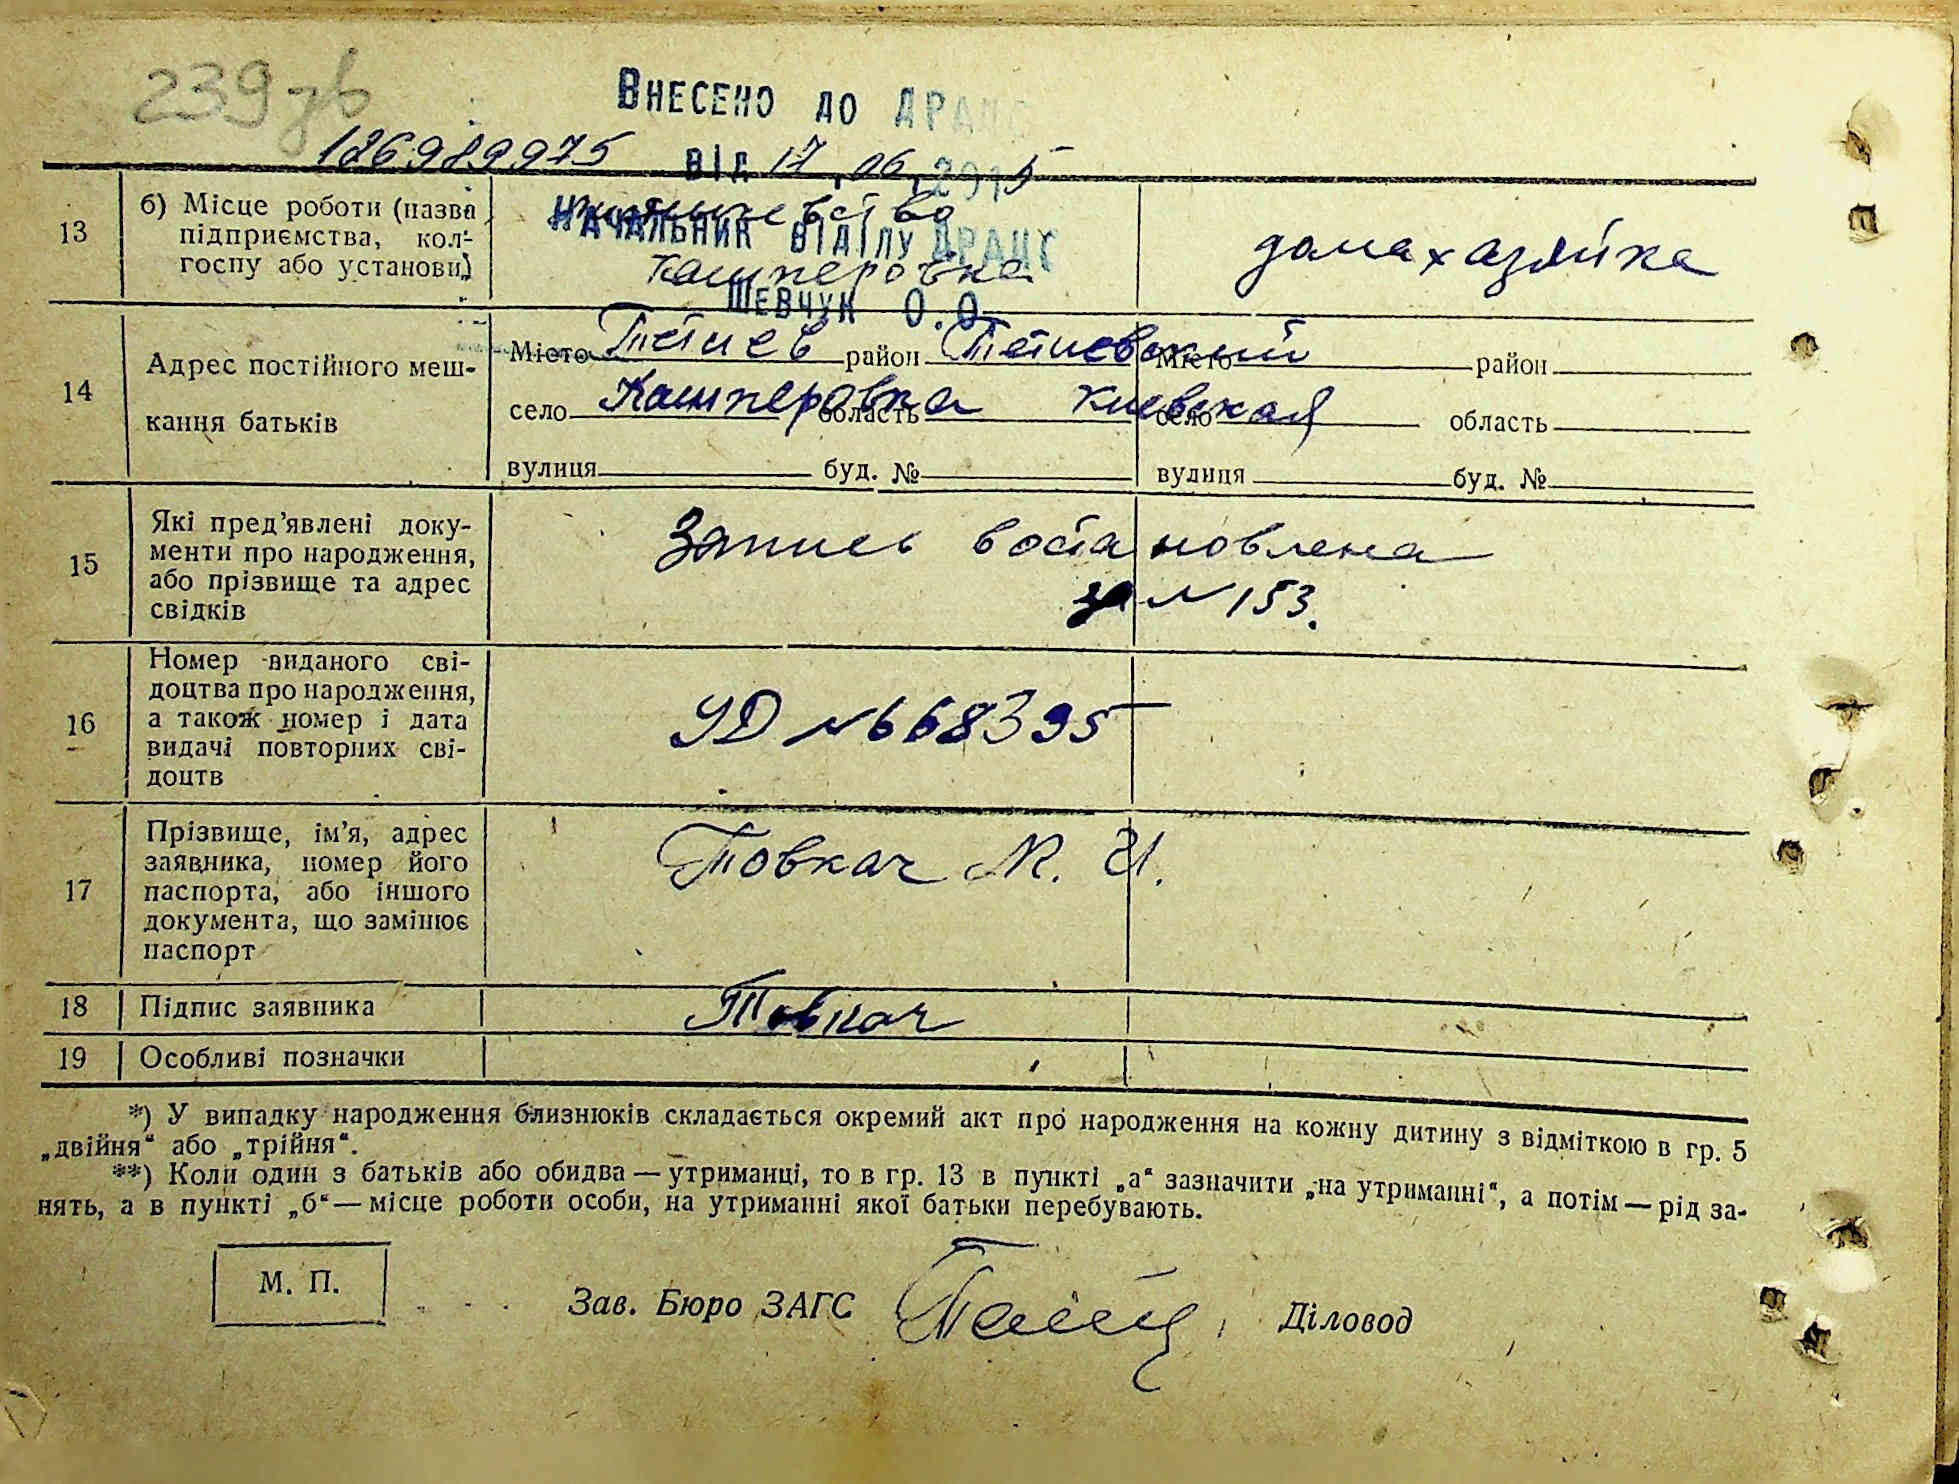 239 зв
ВНЕСЕНО ДО ДРАЦС
126989975 ВІД 17.06.2015
13 б) Місце роботи (назва підприємства, кол-
госпу або установи)
НАЧАЛЬНИК ВІДІЛУ ДРАЦС
Кашперовка
домахазяйка
ШЕВЧУК О.О.
14 Адрес постійного меш-
кання батьків
Місто Тетиев район Тетиевский Місто район
село Кашперовка область Киевская село область
вулиця буд. № вулиця буд. №
15 Які пред'явлені доку-
менти про народження,
або прізвище та адрес
свідків
Запись востановлена
за N 153.
16 Номер виданого сві-
доцтва про народження,
а також номер і дата
видачі повторних сві-
доцтв
УД N 668395
17 Прізвище, ім'я, адрес
заявника, номер його
паспорта, або іншого
документа, що замінює
паспорт
Товкач М. И.
18 Підпис заявника Товкач
19 Особливі позначки
*) У випадку народження близнюків складається окремий акт про народження на кожну дитину з відміткою в гр. 5
„двійня“ або „трійня“.
**) Коли один з батьків або обидва — утриманці, то в гр. 13 в пункті „а“ зазначити „на утриманні“, а потім — рід за-
нять, а в пункті „б“ — місце роботи особи, на утриманні якої батьки перебувають.
М. П.
Зав. Бюро ЗАГС Діловод